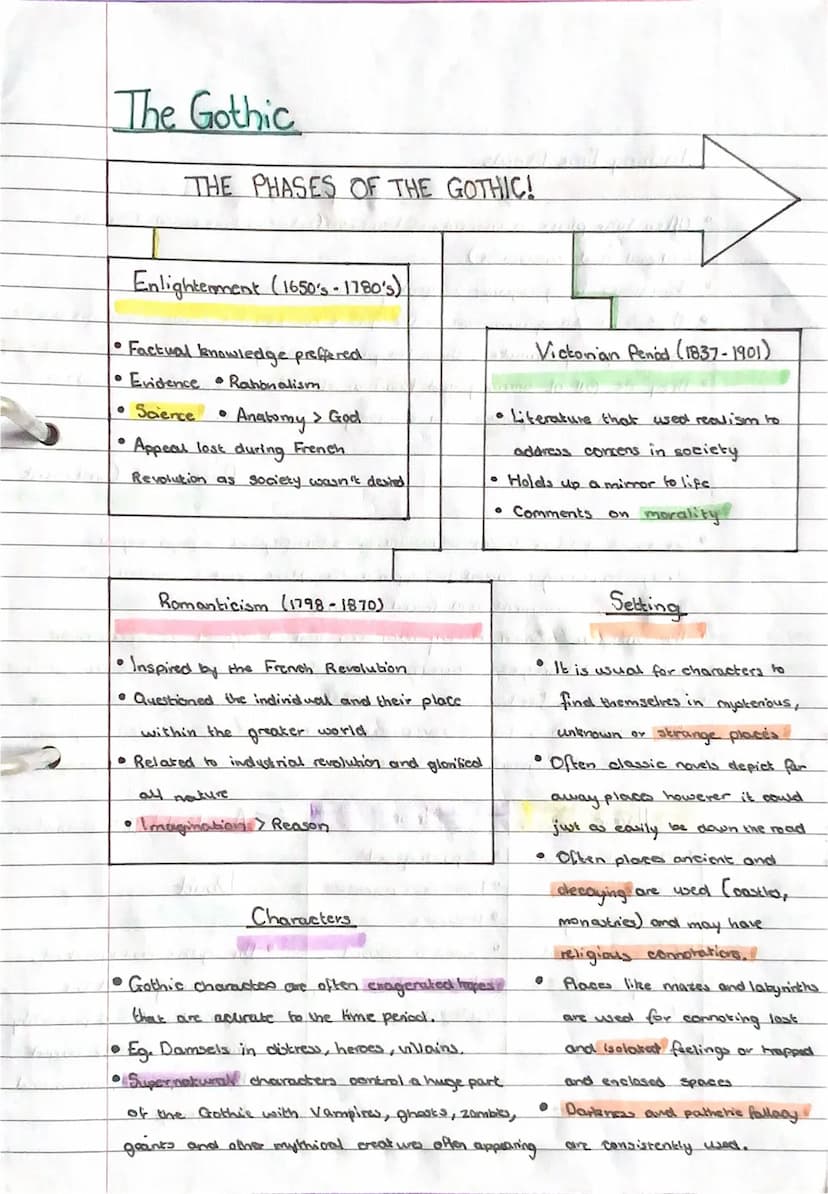 The Gothic
THE PHASES OF THE GOTHIC!
Enlightenment (1650's - 1780's)
• Factual knowledge preffered
• Evidence • Rationalism
• Science • Anatomy > God
• Appeal lost during French
Revolution as society wasn't desired
Victorian Period (1837 - 1901)
• Literature that used realism to
address concens in society
• Holds up a mirror to life
• Comments on morality
Romanticism (1798 - 1870)
• Inspired by the French Revolution
• Questioned the individual and their place
within the greater world
• Related to industrial revolution and glorified
all nature
• Imagination > Reason
Setting
• It is usual for characters to
find themselves in mysterious,
unknown or strange places
• Often classic novels depict far
away places however it could
just as easily be down the road
• Often places ancient and
decaying are used (castles,
monastries) and may have
religious connotations.
• Places like mazes and labyrinths
are used for connoting lost
and isolated feelings or trapped
and enclosed spaces
• Darkness and pathetic fallacy
are consistently used.
Characters
• Gothic characters are often exagerated tropes
that are acurate to the time period.
• Eg. Damsels in distress, heroes, villains.
• Supernatural characters control a huge part
of the Gothic with Vampires, ghosts, zombies,
geants and other mythical creatures often appearing